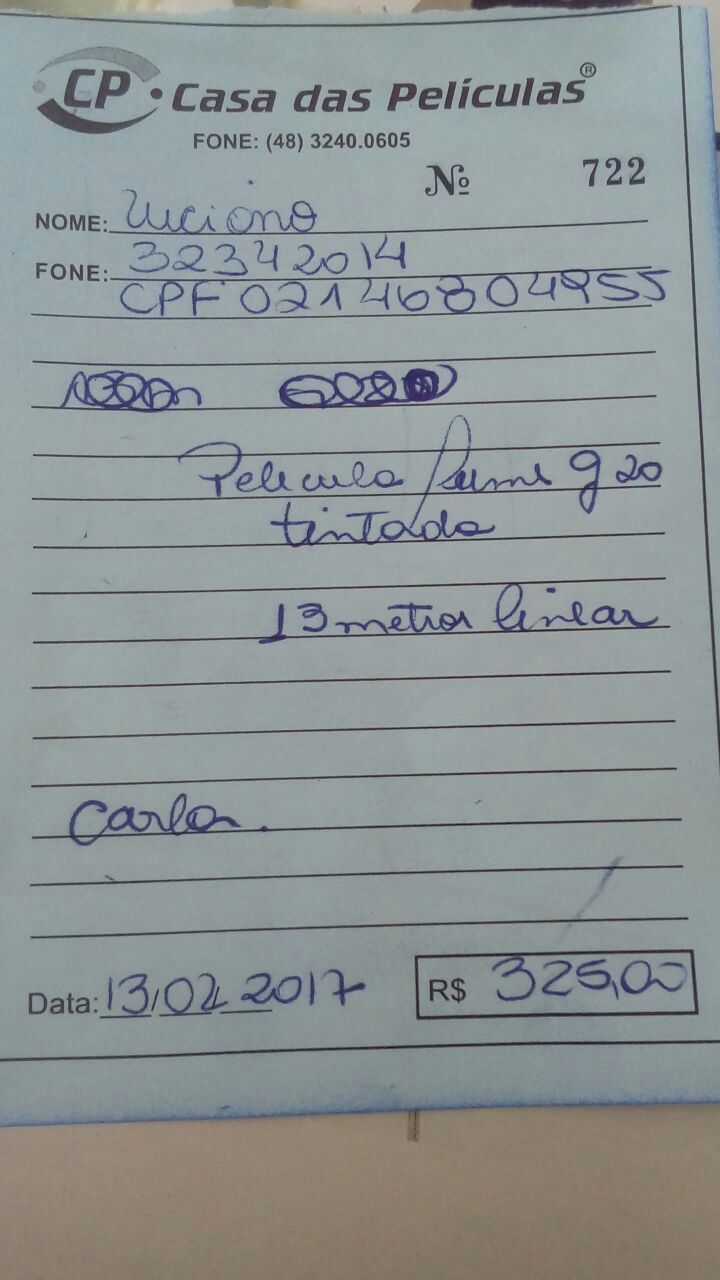 CP • Casa das Películas®
FONE: (48) 3240.0605
Nº 722
NOME: Luciano
FONE: 32342014
CPF 021468804955
Pelicula fume g 20
tintada
13 metros linear
Carlos.
Data: 13/02/2017 R$ 325,00